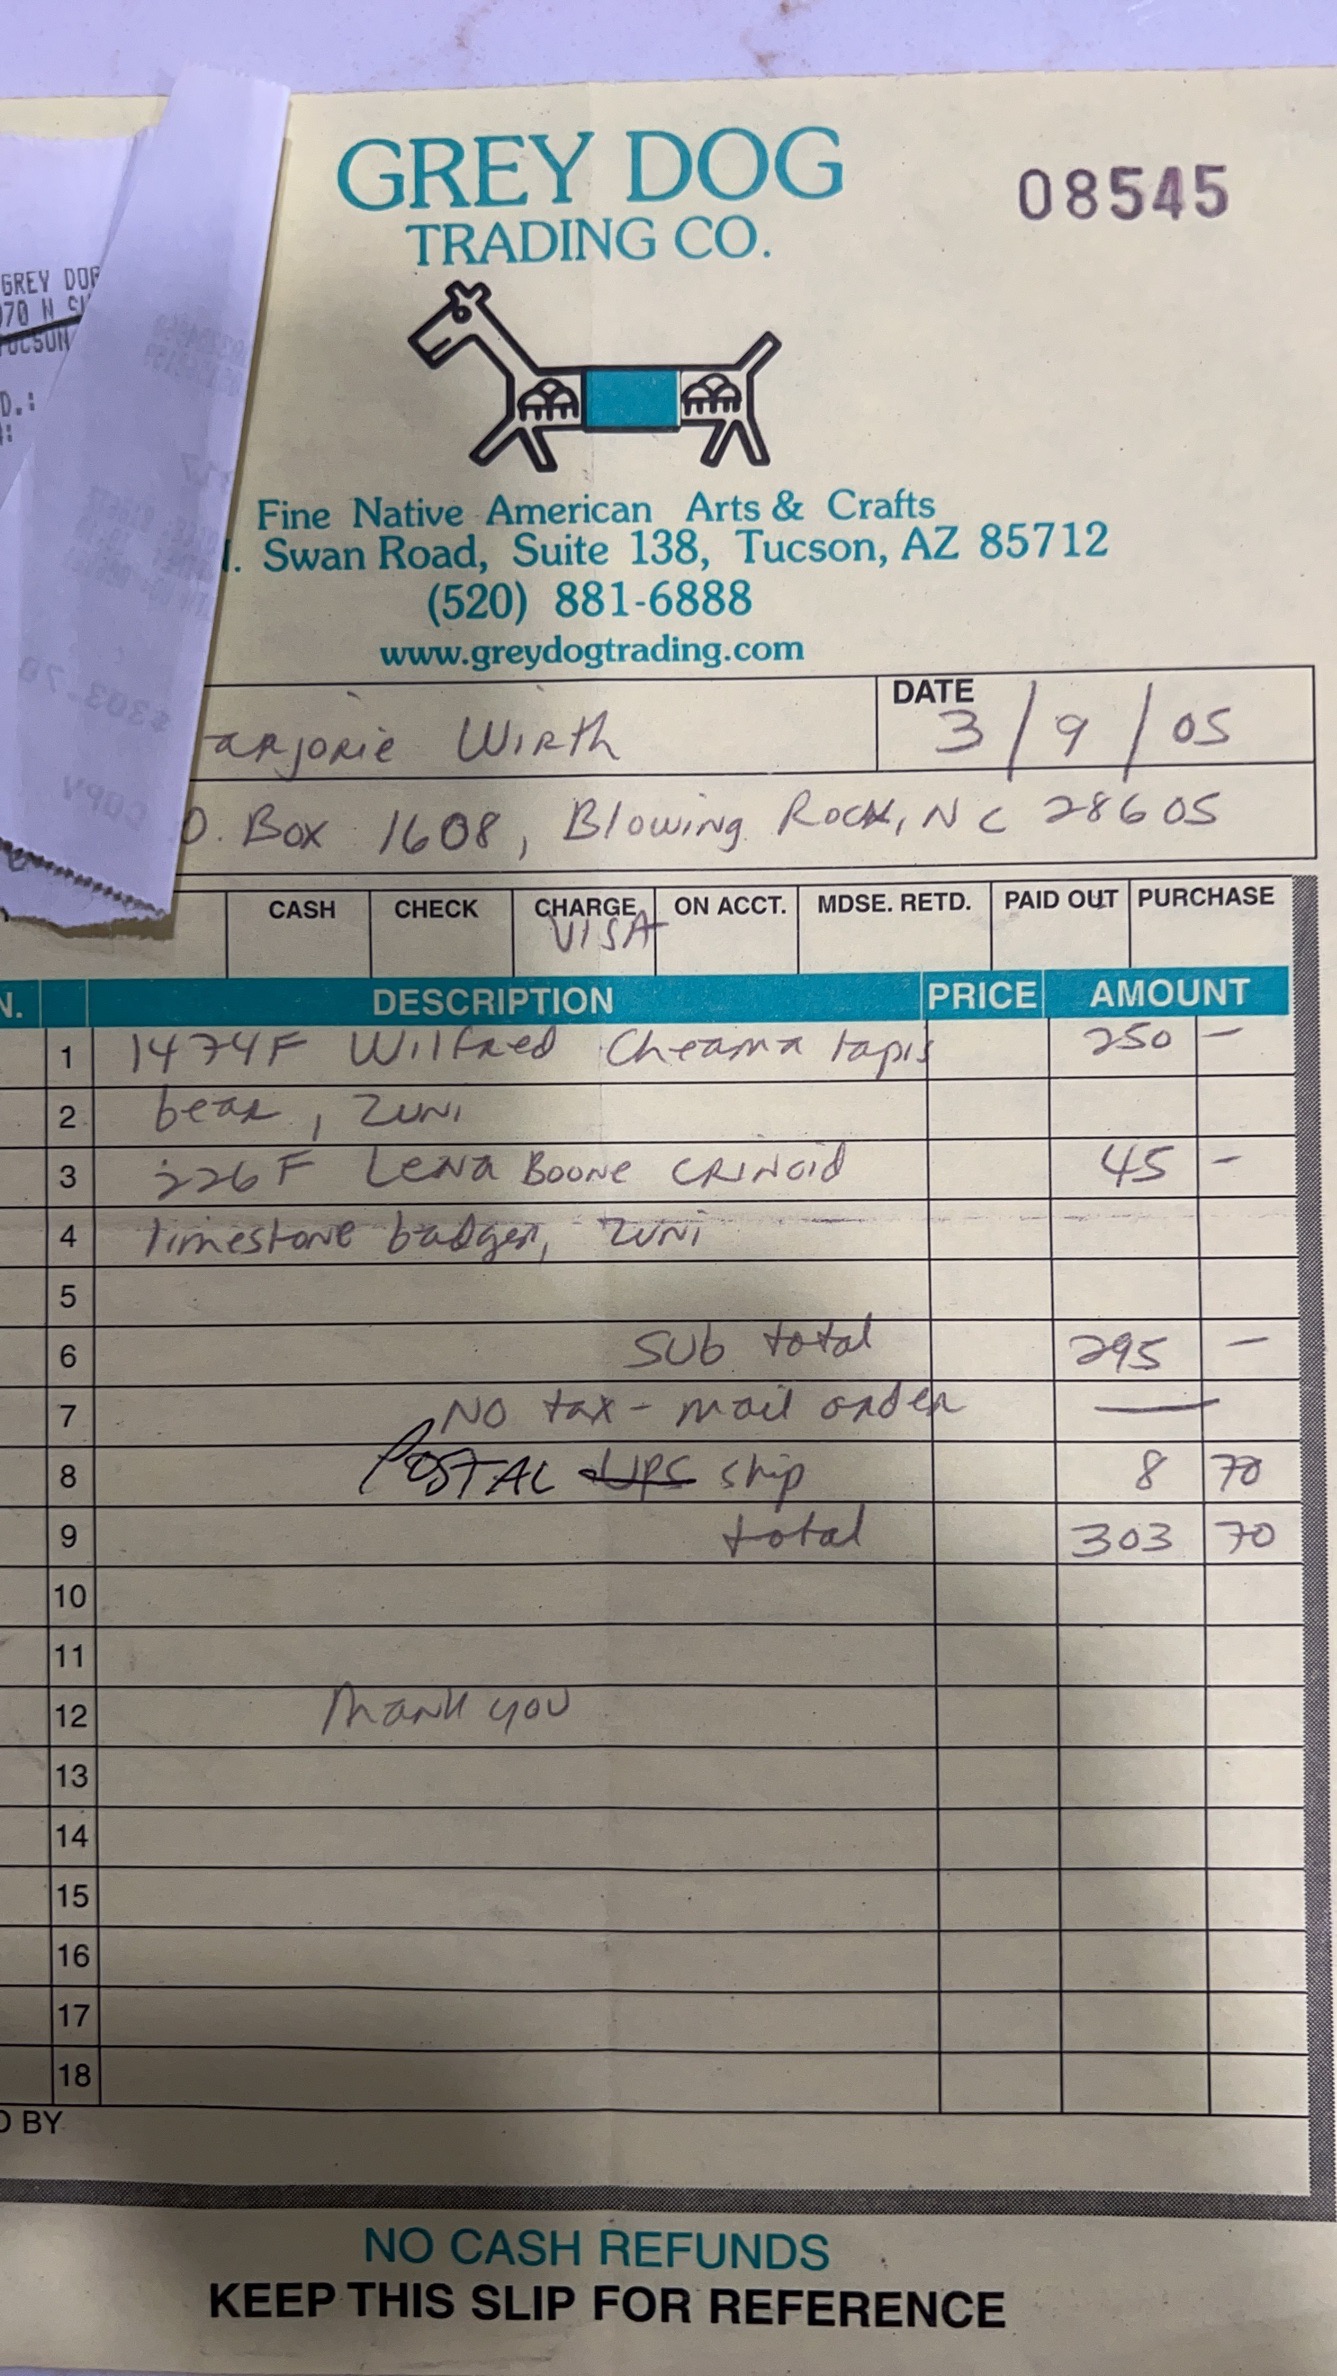 GREY DOG
TRADING CO.
08545
GREY DOG
70 N
TUCSON
D.:
Fine Native American Arts & Crafts
. Swan Road, Suite 138, Tucson, AZ 85712
(520) 881-6888
www.greydogtrading.com
$303.70
COPY
arjorie Wirth
DATE 3/9/05
O. Box 1608, Blowing Rock, NC 28605
CASH CHECK CHARGE ON ACCT. MDSE. RETD. PAID OUT PURCHASE
VISA
N. DESCRIPTION PRICE AMOUNT
1 1474F Wilfred Cheama tapis 250 –
2 bear, Zuni
3 226F Lena Boone CRINOID 45 –
4 limestone badger, Zuni
5
6 Sub total 295 –
7 No tax - mail order —
8 POSTAL UPS ship 8 70
9 total 303 70
10
11
12 Thank you
13
14
15
16
17
18
D BY
NO CASH REFUNDS
KEEP THIS SLIP FOR REFERENCE